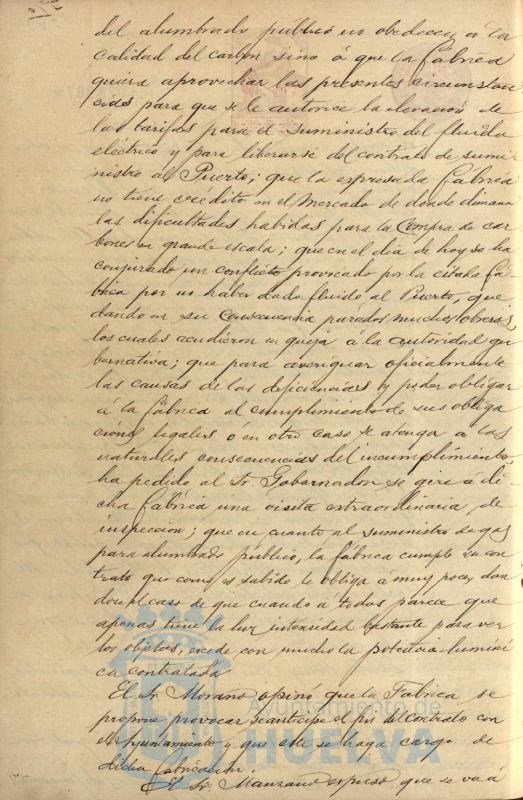 del alumbrado público no obedecen á la
calidad del carbon sino á que la fábrica
quiera aprovechar las presentes circunstan
cias para que se le autorice la elevacion de
las tarifas para el suministro del fluido
electrico y para liberarse del contrato de sumi
nistro al Puerto; que la expresada fábrica
no tiene credito en el mercado de donde dimanan
las dificultades habidas para la compra de car
bones en grande escala; que en el dia de hoy se ha
conjurado un conflicto provocado por la citada fá
brica por no haber dado fluido al Puerto, que
dando en su consecuencia parados muchos obreros,
los cuales acudieron en queja á la autoridad gu
bernativa; que para averiguar oficialmente
las causas de las deficiencias y poder obligar
á la fábrica al cumplimiento de sus obliga
ciones legales ó en otro caso se atenga á las
naturales consecuencias del incumplimiento,
ha pedido al Sr. Gobernador se gire á di
cha fábrica una visita extraordinaria de
inspeccion; que en cuanto al suministro de gas
para alumbrado público, la fábrica cumple su con
trato que como es sabido le obliga á muy poco, dan
dose el caso de que cuando á todos parece que
apenas tiene la luz intensidad bastante para ver
los objetos, excede con mucho la potencia lumíni
ca contratada.
El Sr. Morano opinó que la Fábrica se
propone provocar se anticipe el fin del contrato con
el Ayuntamiento y que este se haga cargo de
dicha fabricacion.
El Sr. Manzano expuso que se vá á
Ayuntamiento de
HUELVA